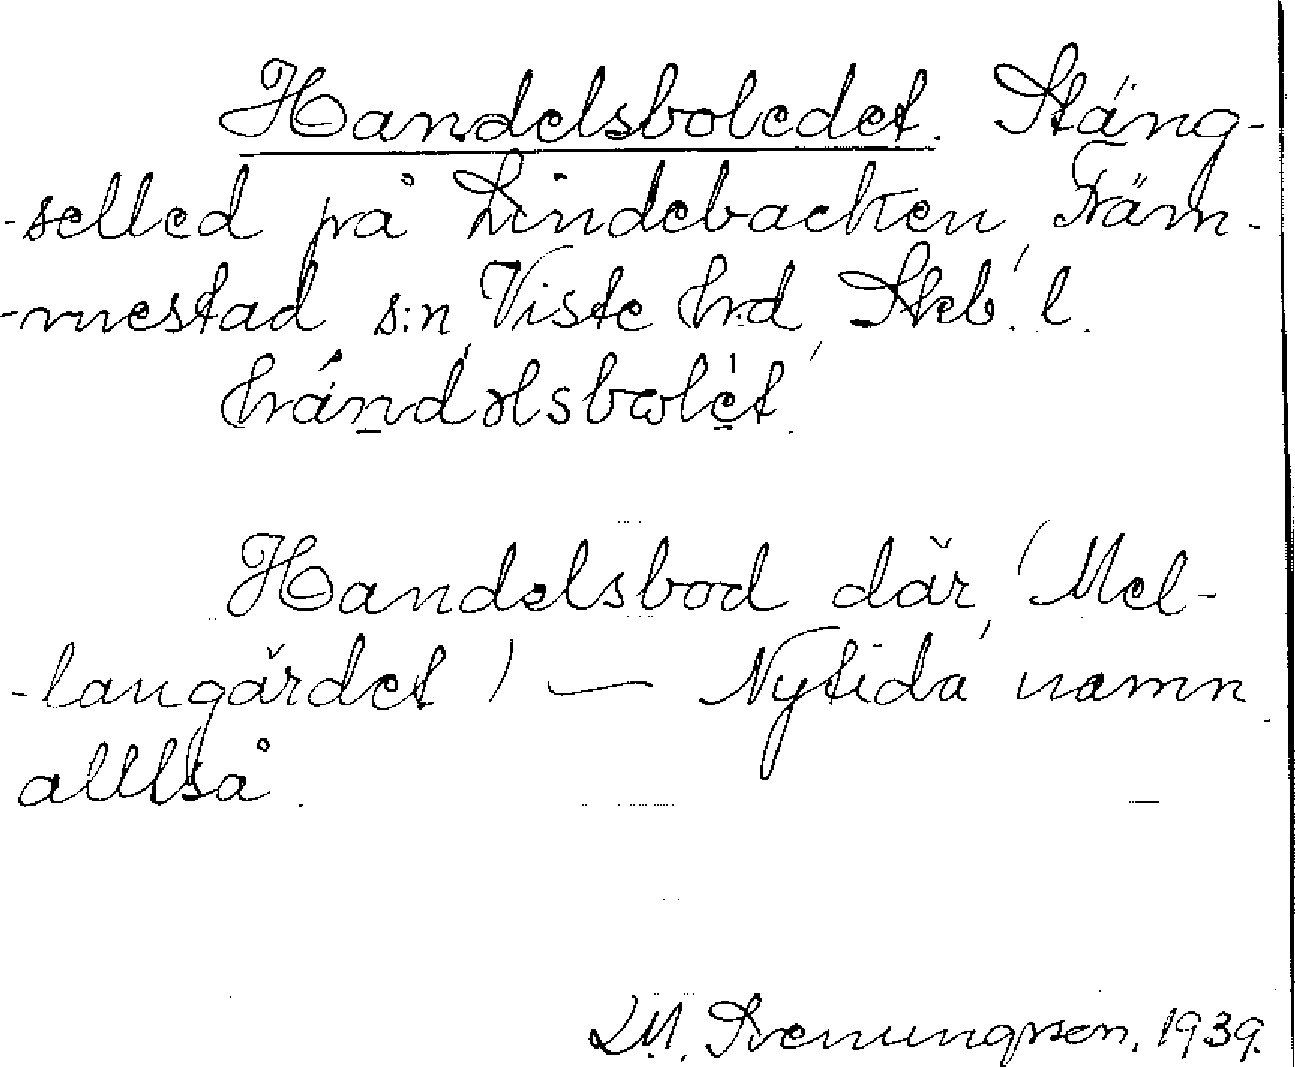 Handelsboledet. Stäng-
-selled på Lindebacken, Främ-
-mestad s:n, Viste hrd, Skab. l.
Handelsbod där (Mel-
-langärdet) — Nytida namn
alltså.
L.M. Svenungsson. 1939.